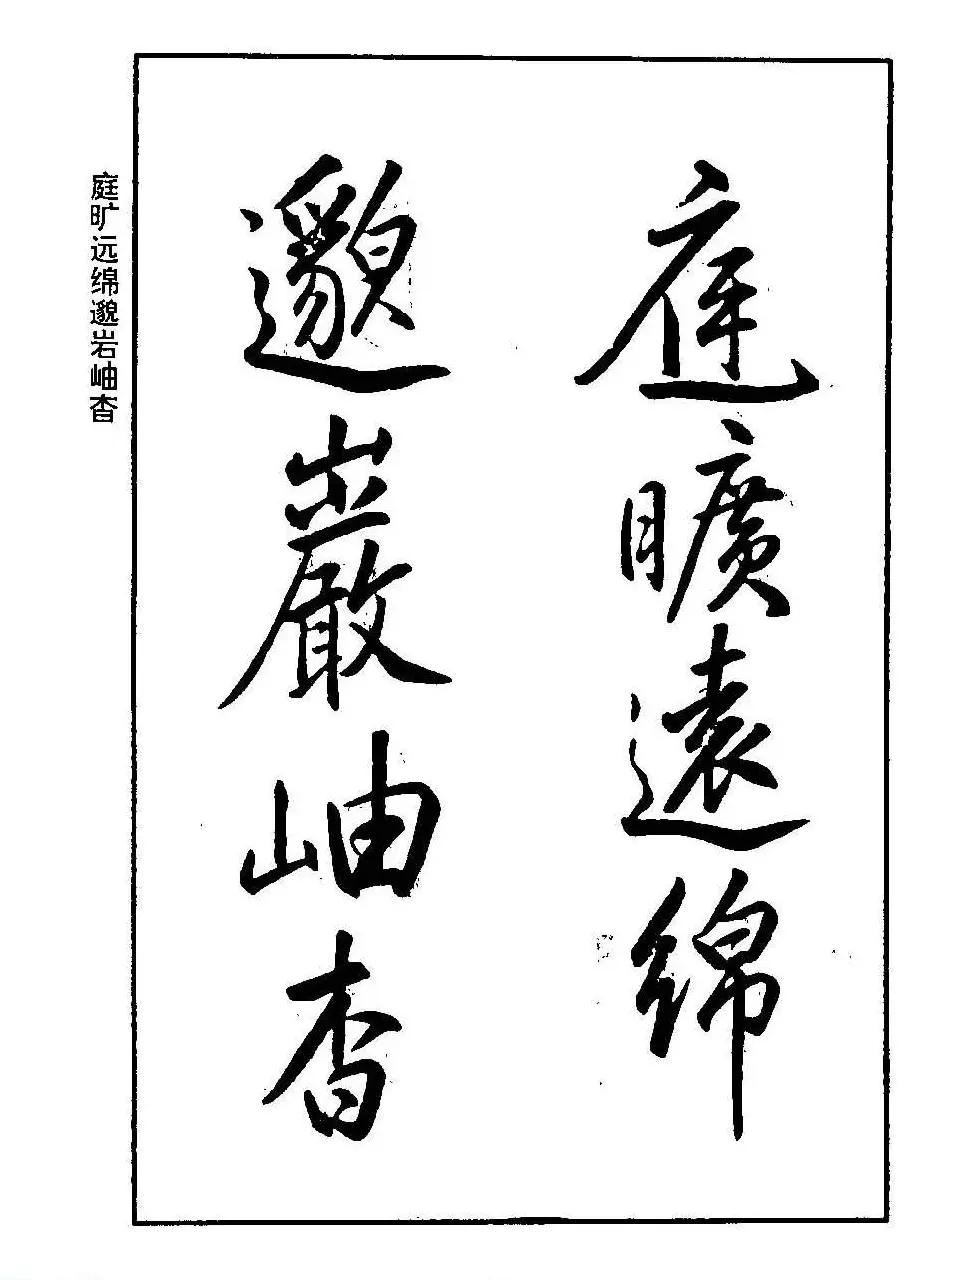 庭曠遠綿
邈巖岫杳
庭旷远绵邈岩岫杳